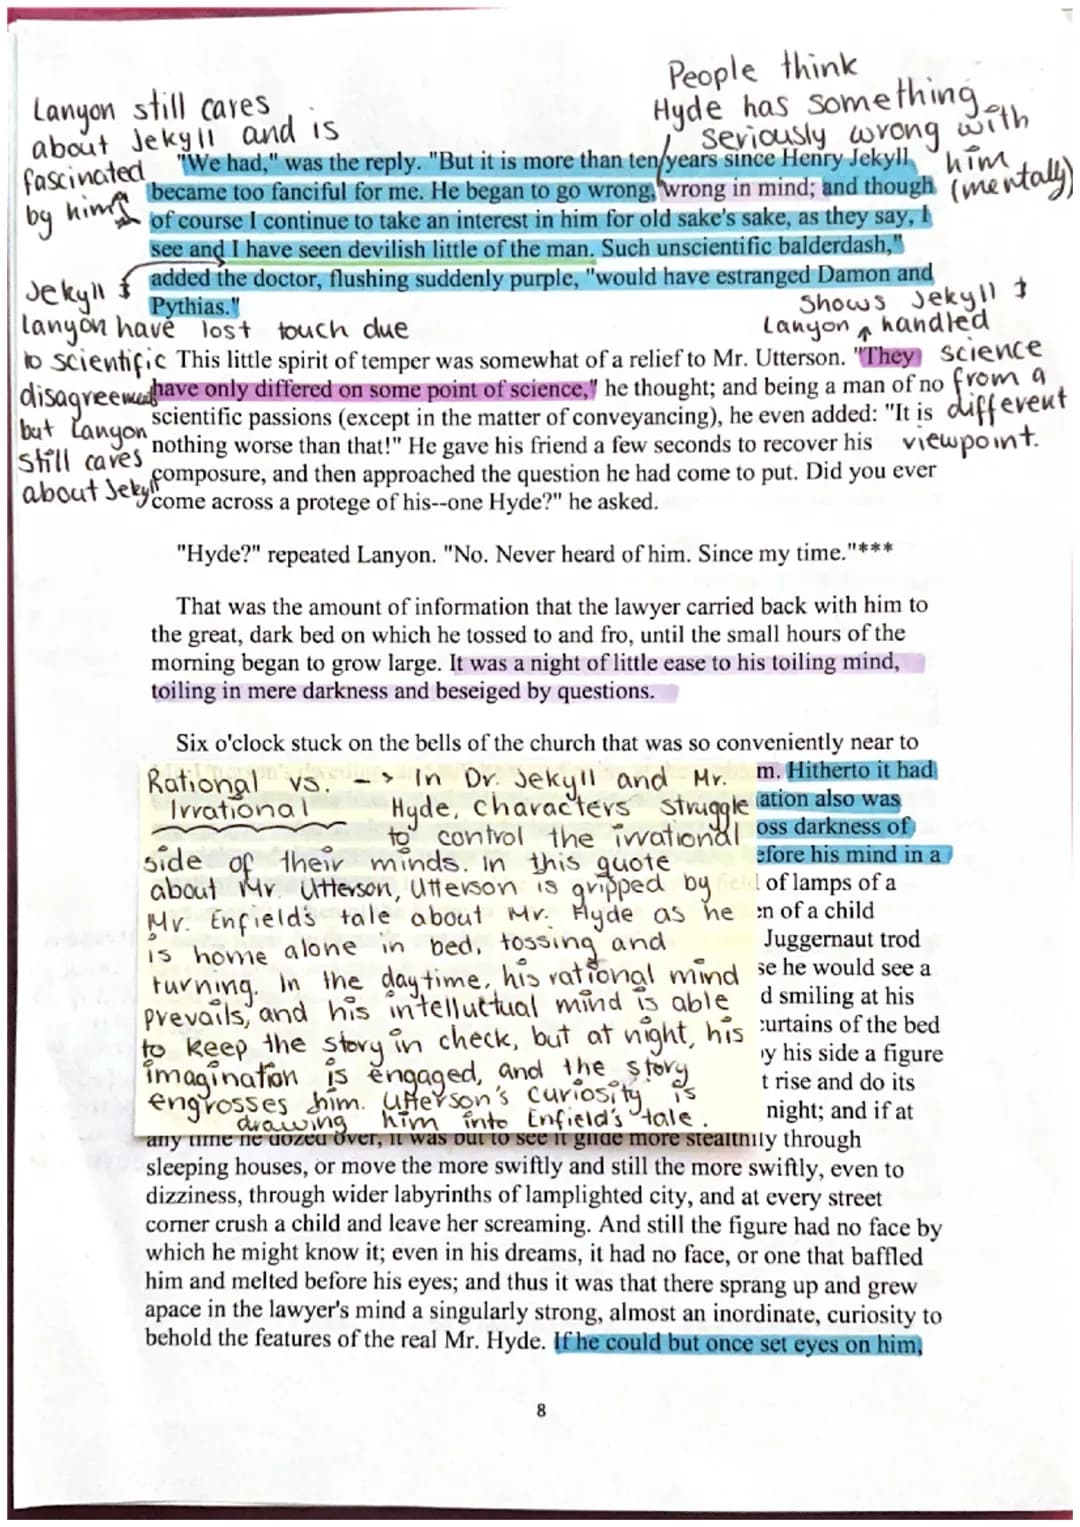 Lanyon still cares
about Jekyll and is
fascinated
by him
People think
Hyde has something
seriously wrong with
him
(mentally)
"We had," was the reply. "But it is more than ten years since Henry Jekyll
became too fanciful for me. He began to go wrong, wrong in mind; and though
of course I continue to take an interest in him for old sake's sake, as they say, I
see and I have seen devilish little of the man. Such unscientific balderdash,"
added the doctor, flushing suddenly purple, "would have estranged Damon and
Pythias."
Jekyll &
Lanyon have lost touch due
to scientific
disagreement
but Lanyon
still cares
about Jekyll
Shows Jekyll &
Lanyon handled
science
from a
different
viewpoint.
This little spirit of temper was somewhat of a relief to Mr. Utterson. "They
have only differed on some point of science," he thought; and being a man of no
scientific passions (except in the matter of conveyancing), he even added: "It is
nothing worse than that!" He gave his friend a few seconds to recover his
composure, and then approached the question he had come to put. Did you ever
come across a protege of his--one Hyde?" he asked.
"Hyde?" repeated Lanyon. "No. Never heard of him. Since my time."***
That was the amount of information that the lawyer carried back with him to
the great, dark bed on which he tossed to and fro, until the small hours of the
morning began to grow large. It was a night of little ease to his toiling mind,
toiling in mere darkness and beseiged by questions.
Six o'clock stuck on the bells of the church that was so conveniently near to
m. Hitherto it had
ation also was
oss darkness of
efore his mind in a
of lamps of a
en of a child
Juggernaut trod
se he would see a
d smiling at his
curtains of the bed
by his side a figure
t rise and do its
night; and if at
Rational vs. --> In Dr. Jekyll and Mr.
Irrational Hyde, characters struggle
to control the irrational
side of their minds. In this quote
about Mr. Utterson, Utterson is gripped by
Mr. Enfield's tale about Mr. Hyde as he
is home alone in bed, tossing and
turning. In the daytime, his rational mind
prevails, and his intelluctual mind is able
to keep the story in check, but at night, his
imagination is engaged, and the story
engrosses him. Utterson's curiosity is
drawing him into Enfield's tale.
any time he dozed over, it was but to see it glide more stealthily through
sleeping houses, or move the more swiftly and still the more swiftly, even to
dizziness, through wider labyrinths of lamplighted city, and at every street
corner crush a child and leave her screaming. And still the figure had no face by
which he might know it; even in his dreams, it had no face, or one that baffled
him and melted before his eyes; and thus it was that there sprang up and grew
apace in the lawyer's mind a singularly strong, almost an inordinate, curiosity to
behold the features of the real Mr. Hyde. If he could but once set eyes on him,
8